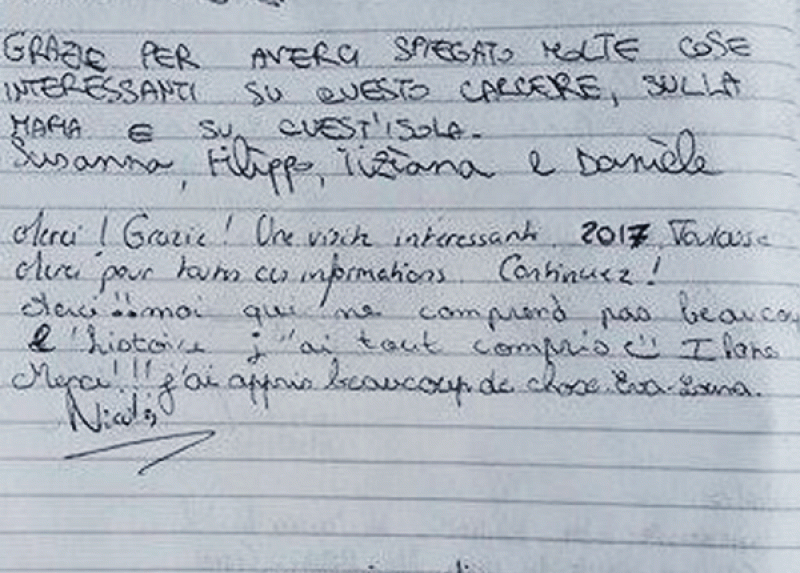 GRAZIE PER AVERCI SPIEGATO MOLTE COSE
INTERESSANTI SU QUESTO CARCERE, SULLA
MAFIA E SU QUEST'ISOLA.
Susanna, Filippo, Tiziana e Danièle
Merci ! Grazie ! Une visite intéressante. 2017, Toulouse
Merci pour toutes ces informations. Continuez !
Merci !! moi qui ne comprend pas beaucou
l'histoire j'ai tout compris Ilana
Merci !!! j'ai appris beaucoup de chose. Eva-Louna.
Nicolas